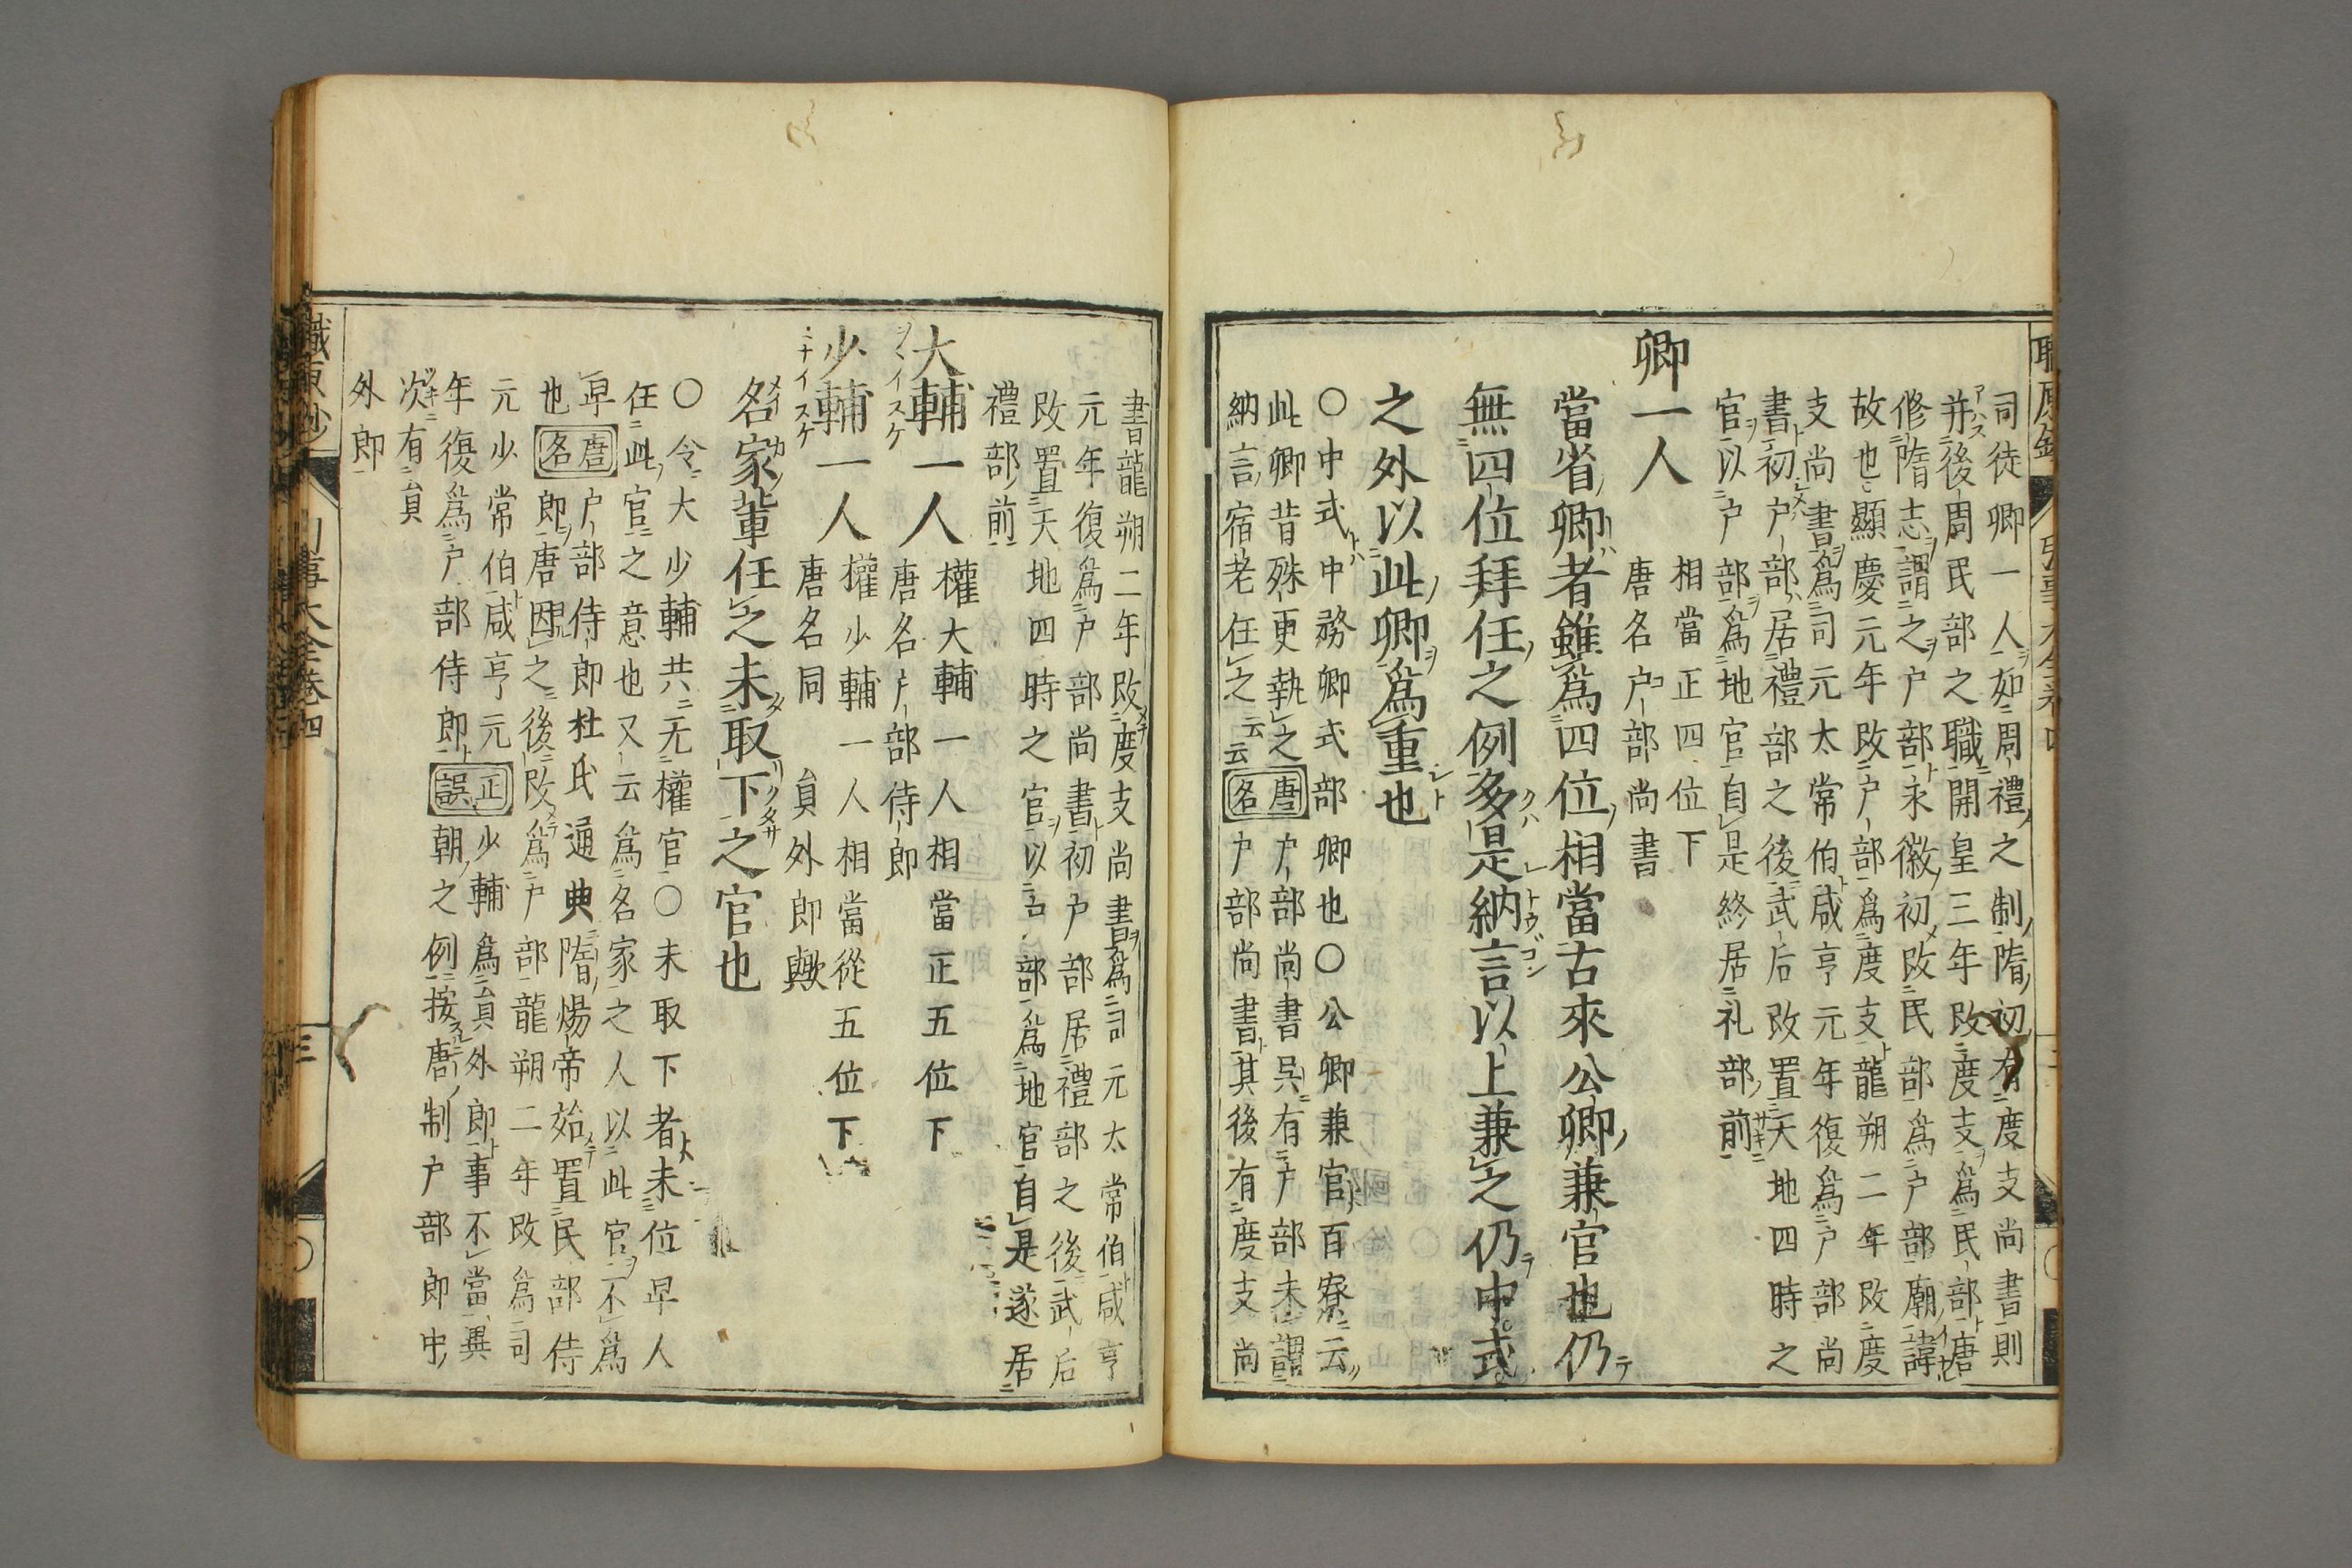 司徒卿一人如周禮之制隋初有度支尚書則
并後周民部之職開皇三年改度支為民部唐
修隋志謂之户部永徽初改民部為户部廟諱
故也顯慶元年改户部為度支龍朔二年改度
支尚書為司元太常伯咸亨元年復為户部尚
書初户部居禮部之後武后改置天地四時之
官以户部為地官自是終居礼部前
卿一人
相當正四位下
唐名户部尚書
當省卿者雖為四位相當古來公卿兼官也仍
無四位拜任之例多是納言以上兼之仍中式
之外以此卿為重也
〇中式中務卿式部卿也〇公卿兼官百寮云
此卿昔殊更執之唐名户部尚書呉有户部未謂
納言宿老任之云云户部尚書其後有度支尚
書龍朔二年改度支尚書為司元太常伯咸亨
元年復為户部尚書初户部居禮部之後武后
改置天地四時之官以户部為地官自是遂居
禮部前
大輔一人
權大輔一人相當正五位下
唐名户部侍郎
少輔一人
權少輔一人相當從五位下
唐名同 員外郎歟
名家輩任之未取下之官也
〇令大少輔共无權官〇未取下者未位早人
任此官之意也又云為名家之人以此官不為
早户部侍郎杜氏通典隋煬帝始置民部侍
也唐名郎唐因之後改為户部龍朔二年改為司
元少常伯咸亨元少輔為員外郎事不當異
年復為户部侍郎正誤朝之例按唐制户部郎中
次有員
外郎